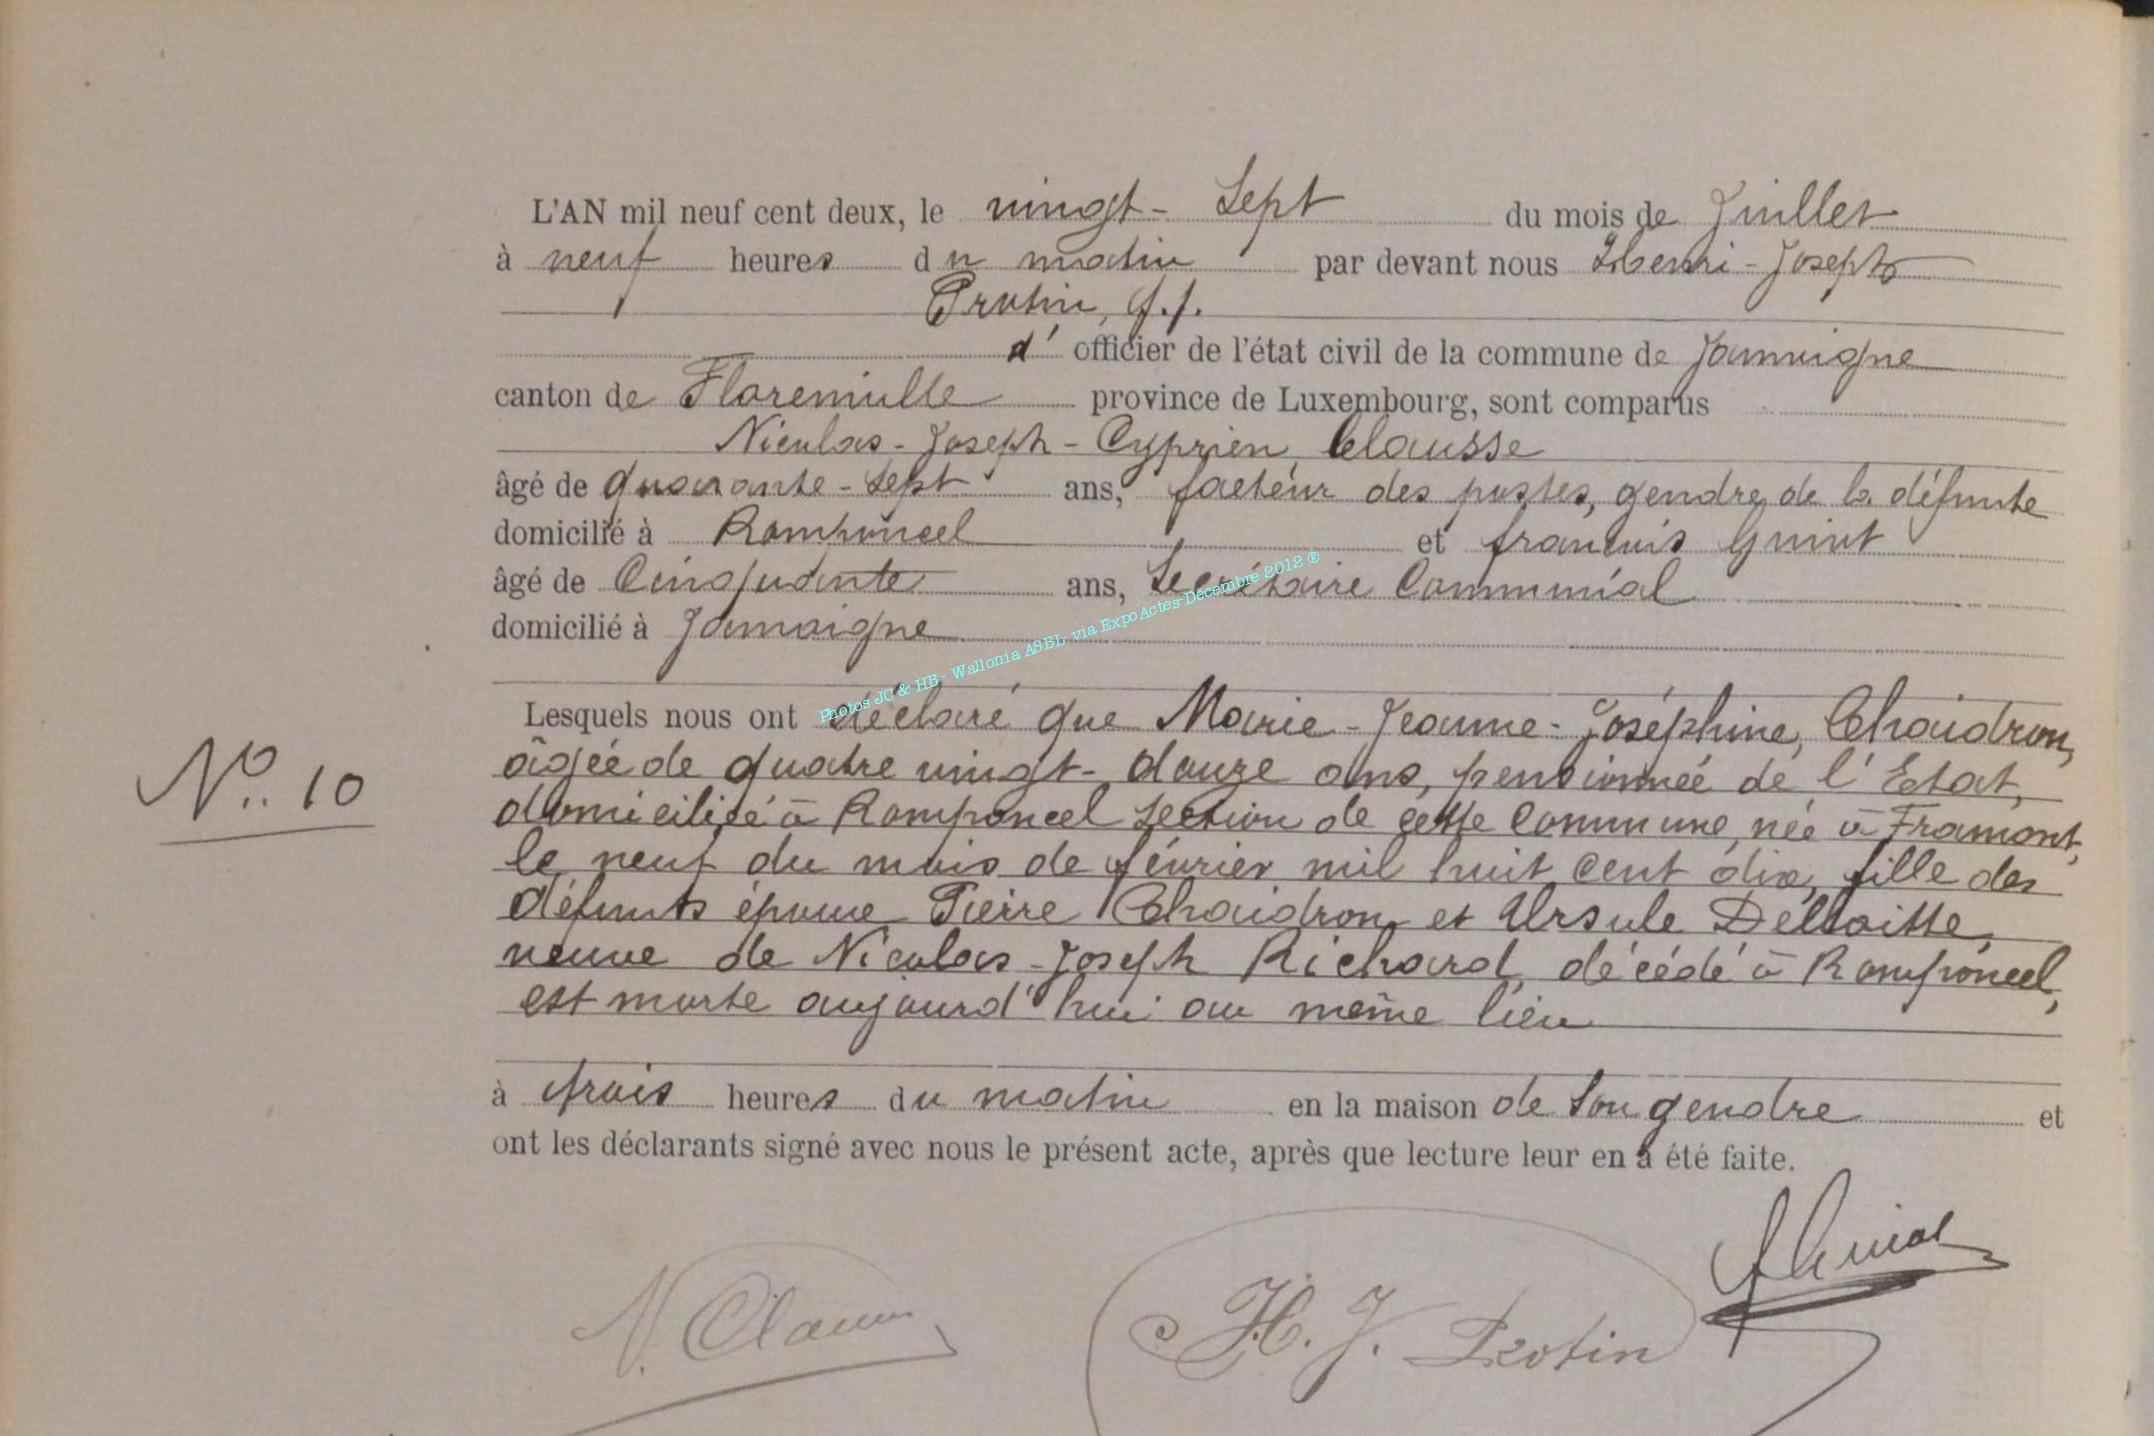 L'AN mil neuf cent deux, le vingt-Sept du mois de Juillet
à neuf heures du matin par devant nous Henri-Joseph
Protin, f.f.
d' officier de l'état civil de la commune de Jamoigne
canton de Florenville province de Luxembourg, sont comparus
Nicolas-Joseph-Cyprien Clausse
âgé de quarante-sept ans, facteur des postes, gendre de la défunte
domicilié à Romponcel et françois Guiot
âgé de Cinquante ans, Secrétaire Communal
domicilié à Jamoigne
Photos JC & HB - Wallonia ASBL via ExpoActes-Décembre 2012 ®
Lesquels nous ont déclaré que Marie-Jeanne-Joséphine, Chaidron,
N° 10
âgée de quatre vingt-douze ans, pensionnée de l'Etat,
domiciliée à Romponcel Section de cette Commune, née à Framont,
le neuf du mois de février mil huit cent dix, fille des
défunts époux Pierre Chaidron et Ursule
veuve de Nicolas-Joseph Richard, décédé à Romponcel,
est morte aujourd'hui au même lieu
à trois heures du matin en la maison de son gendre et
ont les déclarants signé avec nous le présent acte, après que lecture leur en a été faite.
N. Clausse H. J. Protin